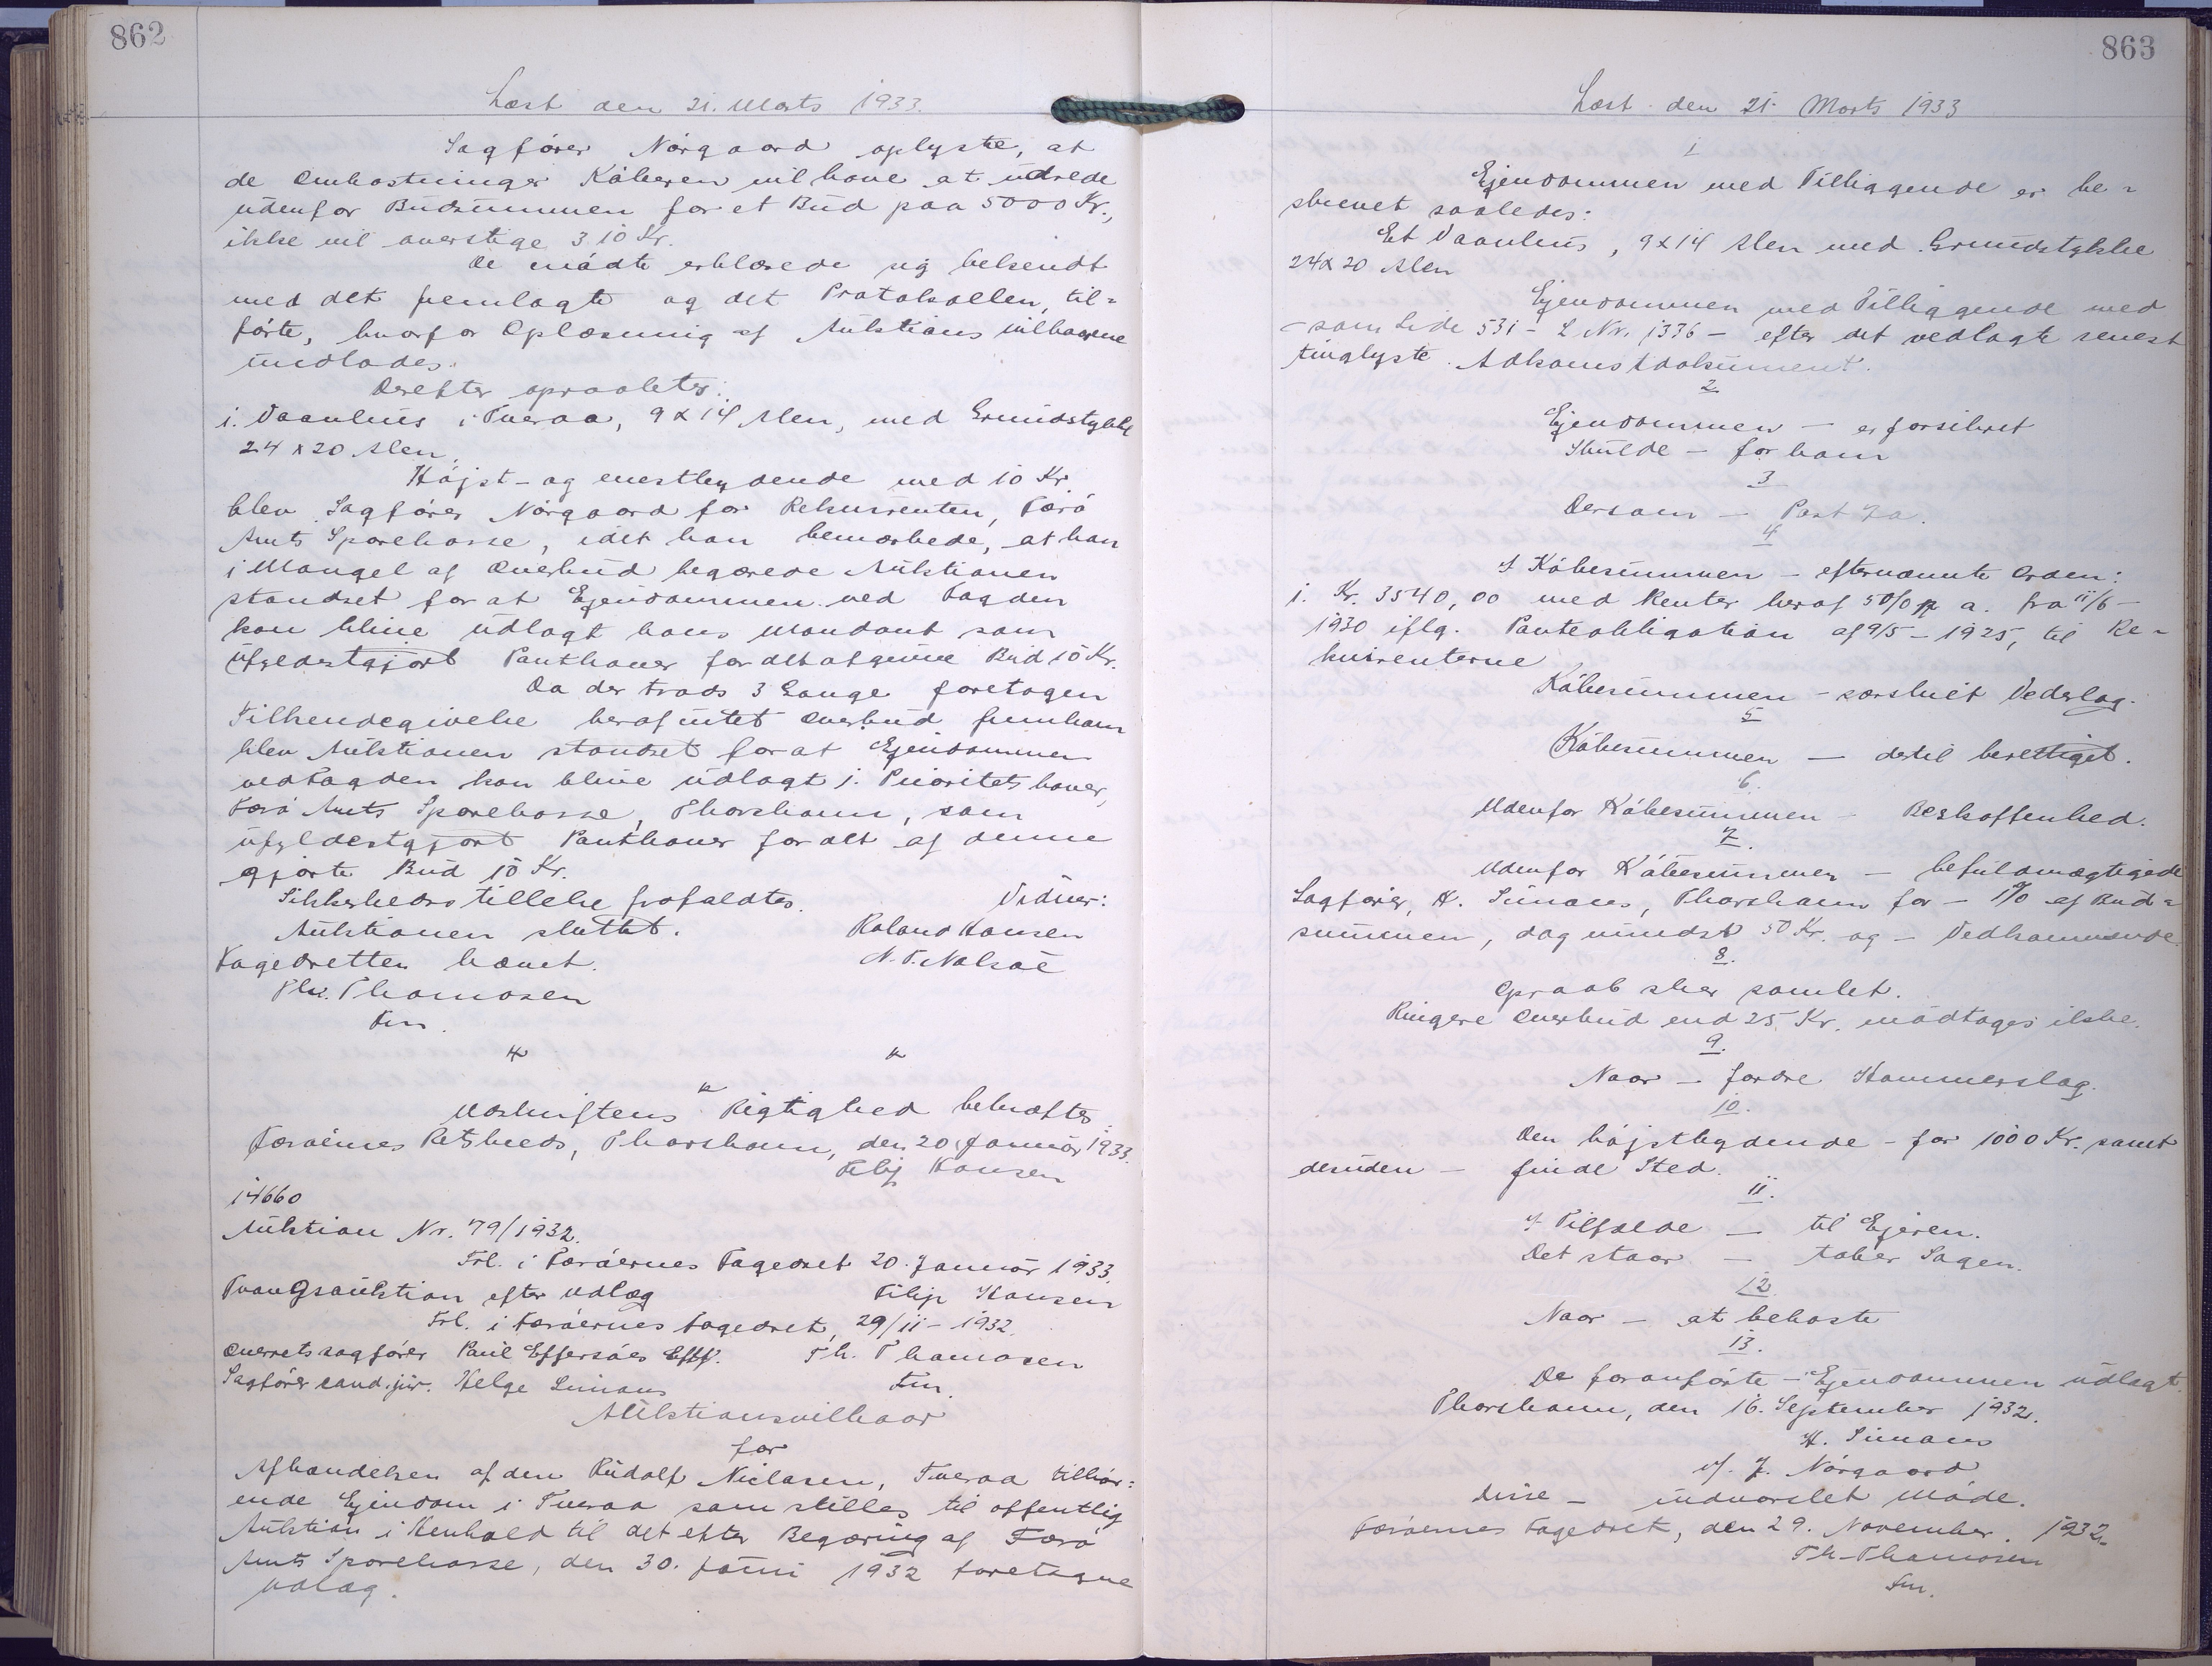 862
Læst den 21. Marts 1933.
Sagfører Nørgaard oplyste, at
de Omkostninger Køberen vil have at udrede
udenfor Budsummen for et Bud paa 5000 Kr.,
ikke vil overstige 310 Kr.
De mødte erklærede sig bekendt
med det fremlagte og det Protokollen til-
førte, hvorfor Oplæsning af Auktionsvilkaarene
undlades.
Derefter opraabtes:
1. Vaanhus i Tveraa, 9 x 14 Alen, med Grundstykke
24 x 20 Alen.
Højst- og enestbydende med 10 Kr.
blev Sagfører Nørgaard for Rekvirenten, Færø
Amts Sparekasse, idet han bemærkede, at han
i Mangel af Overbud begærede Auktionen
standset for at Ejendommen ved Fogden
kan blive udlagt hans Mandant som
ufyldestgjort Panthaver for det afgivne Bud 10 Kr.
Da der trods 3 Gange foretagen
Tilkendegivelse heraf intet Overbud fremkom
blev Auktionen standset for at Ejendommen
ved Fogden kan blive udlagt i. Prioritetshaver,
Færø Amts Sparekasse, Thorshavn, som
ufyldestgjort Panthaver for det af denne
gjorte Bud 10 Kr.
Sikkerhedsstillelse frafaldtes. Vidner:
Auktionen sluttet. Roland Hansen
Fogedretten hævet. N. T. Nolsøe
Th. Thomasen
Fm.
" "
"
Udskriftens Rigtighed bekræftes
Færøernes Retskreds, Thorshavn, den 20. Januar 1933.
Filip Hansen
14660
Auktion Nr. 79/1932.
Frl. i Færøernes Fogedret 20. Januar 1933.
Tvangsauktion efter Udlæg Filip Hansen
Frl. i Færøernes Fogedret, 29/11 - 1932.
Overretssagfører Paul Effersøes Eftf. Th. Thomasen
Sagfører cand. jur. Helge Simons Fm.
Auktionsvilkaar
for
Afhændelsen af den Rudolf Niclasen, Tveraa tilhør-
ende Ejendom i Tveraa som stilles til offentlig
Auktion i Henhold til det efter Begæring af Færø
Amts Sparekasse, den 30. Juni 1932 foretagne
Udlæg.
863
Læst den 21. Marts 1933
1
Ejendommen med Tilliggende er be-
skrevet saaledes:
Et Vaanhus, 9 x 14 Alen med Grundstykke
24 x 20 Alen
Ejendommen med Tilliggende med
- som Side 531 - L Nr. 1336 - efter det vedlagte senest
tinglyste Adkomstdokument.
2
Ejendommen - er forsikret
Skulde - for ham
3
Dersom - Post 7a.
4
Af Købesummen - efternævnte Orden:
1. Kr. 3540,00 med Renter heraf 5 0/0 p a. fra 11/6 -
1930 iflg. Panteobligation af 9/5 - 1925, til Re-
kvirenterne
Købesummen - særskilt Vederlag.
5
Købesummen - dertil berettiget.
6.
Udenfor Købesummen - Beskaffenhed.
7.
Udenfor Købesummen - befuldmægtigede
Sagfører, H. Simons, Thorshavn for - 1% af Bud-
summen, dog mindst 50 Kr. og - Vedkommende.
8.
Opraab sker samlet.
Ringere Overbud end 25 Kr. modtages ikke.
9.
Naar - fordre Hammerslag.
10.
Den højstbydende - for 1000 Kr. samt
desuden - finde Sted.
11.
I Tilfælde - til Ejeren.
Det staar - taber Sagen.
12
Naar - at bekoste
13.
De foranførte - Ejendommen udlagt.
Thorshavn, den 16. September 1932.
H. Simons
v/. J. Nørgaard
Disse - indvarslet Møde.
Færøernes Fogedret, den 29. November 1932.
Th. Thomasen
Fm.